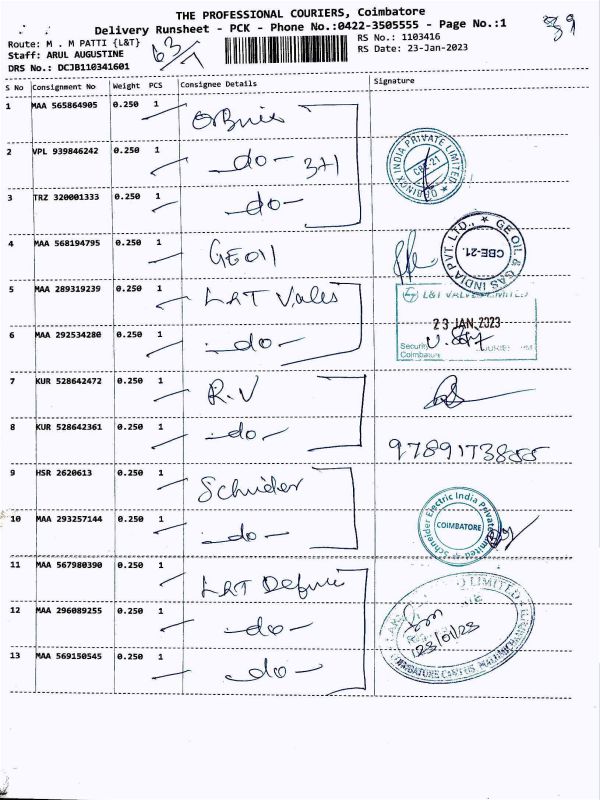 THE PROFESSIONAL COURIERS, Coimbatore
Delivery Runsheet - PCK - Phone No.:0422-3505555 - Page No.:1
Route: M . M PATTI {L&T}
RS No.: 1103416
Staff: ARUL AUGUSTINE
RS Date: 23-Jan-2023
DRS No.: DCJB110341601
63/7
39
S No Consignment No Weight PCS Consignee Details Signature
1 MAA 565864905 0.250 1
2 VPL 939846242 0.250 1 -do- 3+1
3 TRZ 320001333 0.250 1 -do-
INDIA PRIVATE LIMITED
CBE-21
4 MAA 568194795 0.250 1 GEOIL
GE OIL & GAS INDIA PVT. LTD.,
CBE-21.
5 MAA 289319239 0.250 1 L&T Vales
L&T VALVES LIMITED
23 JAN 2023
Security
Coimbatore
6 MAA 292534280 0.250 1 -do-
7 KUR 528642472 0.250 1 R.V
8 KUR 528642361 0.250 1 -do-
9789173855
9 HSR 2620613 0.250 1 Schnider
10 MAA 293257144 0.250 1 -do-
Schneider Electric India Private Limited
COIMBATORE
11 MAA 567980390 0.250 1 L&T Defence
12 MAA 296089255 0.250 1 -do-
13 MAA 569150545 0.250 1 -do-
LIMITED
23/01/23
COIMBATORE CAMPUS